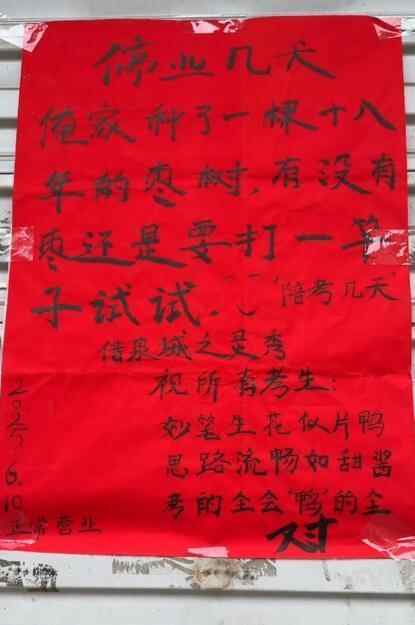 停业几天
俺家种了一棵十八
年的枣树,有没有
枣还是要打一竿
子试试.
(陪考几天
借泉城之灵秀
祝所有考生:
妙笔生花似片鸭
思路流畅如甜酱
考的全会"鸭"的全
对
2025.6.10
正常营业